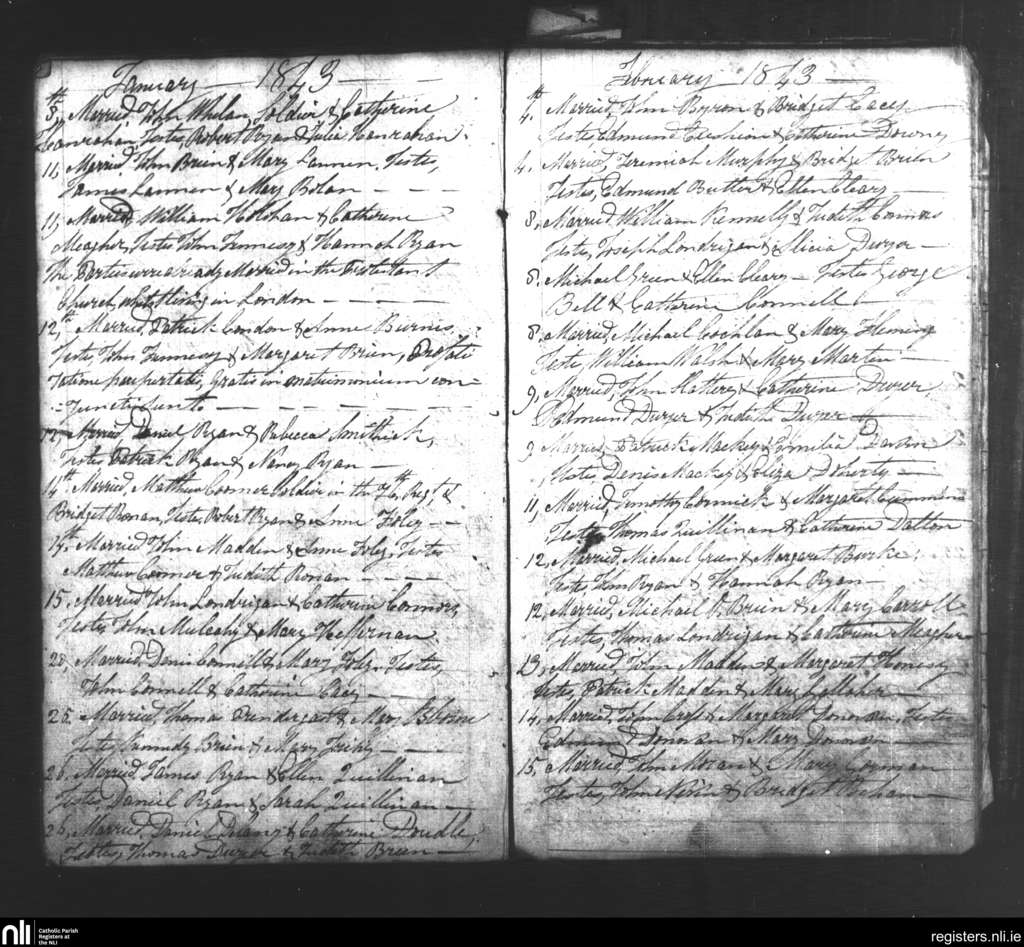 January — 1843 —
5th, Married, John Whelan, Soldier, & Catherine
Hanrahan, Testes, Robert Ryan & Julia Hanrahan.
11, Married, John Brien & Mary Lannen, Testes,
James Lannen & Mary Bolan — — —
11, Married, William Holohan & Catherine
Meagher, Testes John Fennessy & Hannah Ryan
The Parties were already Married in the Protestant
Church, whilst living in London — — — —
12th Married, Patrick Condon & Anne Burnis,
Testes, John Fennessy & Margaret Brien,
ratione paupertatis, Gratis in matrimonium con=
=juncti sunt. — — — — — —
Married Daniel Ryan & Rebecca Smithick,
Testes Patrick Ryan & Nancy Ryan —
14th Married, Matthew Connor Soldier in the 76 Regt, &
Bridget Ronan, Testes, Robert Ryan & Anne Foley — —
14th Married John Madden & Anne Foley, Testes
Matthew Connor & Judith Ronan — — — —
15, Married John Londrigan & Catherine Connors,
Testes John Mulcahy & Mary Heffernan
20, Married, Denis Connell & Mary Foley, Testes,
John Connell & Catherine Casey — — —
25, Married, Thomas Prendergast & Mary
Testes, Kennedy Brien & Mary — — —
26, Married, James Ryan & Ellen Quillinan
Testes Daniel Ryan & Sarah Quillinan —
26, Married, Daniel Delany & Catherine Doudle,
Testes, Thomas Dwyer & Judith Brien —
February 1843 —
4th Married, John Byron & Bridget Casey
Testes Edmund & Catherine Downey
4. Married, Jeremiah Murphy & Bridget Brien
Testes, Edmund Butler & Ellen Cleary —
8. Married, William Kennelly & Judith Connors
Testes, Joseph Londrigan & Alicia Dwyer —
8. Michael Green & Ellen Cleary — Testes George
Bell & Catherine Connell.
8. Married, Michael Coghlan & Mary Fleming
Testes, William Walsh & Mary Martin —
9, Married, John Slattery & Catherine Dwyer,
Edmund Dwyer & Judith Dwyer
9 Married, Patrick Mackey & Emilia
Testes, Denis Mackey & Eliza Doherty —
11, Married, Timothy Cormick & Margaret Cummins
Testes Thomas Quillinan & Catherine Dalton
12, Married, Michael Green & Margaret Burke,
Testes John Ryan & Hannah Ryan —
12, Married, Michael O,Brien & Mary Carroll
Testes, Thomas Londrigan & Catherine Meagher
13, Married, John Madden & Margaret
Testes, Patrick Madden & Mary Gallaher —
14, Married, John & Margaret Donovan, Testes
Edmund Donovan & Mary Donovan —
15, Married John Moran & Mary Gorman
Testes, John & Bridget Meehan —
nli
Catholic Parish
Registers at
the NLI
registers.nli.ie